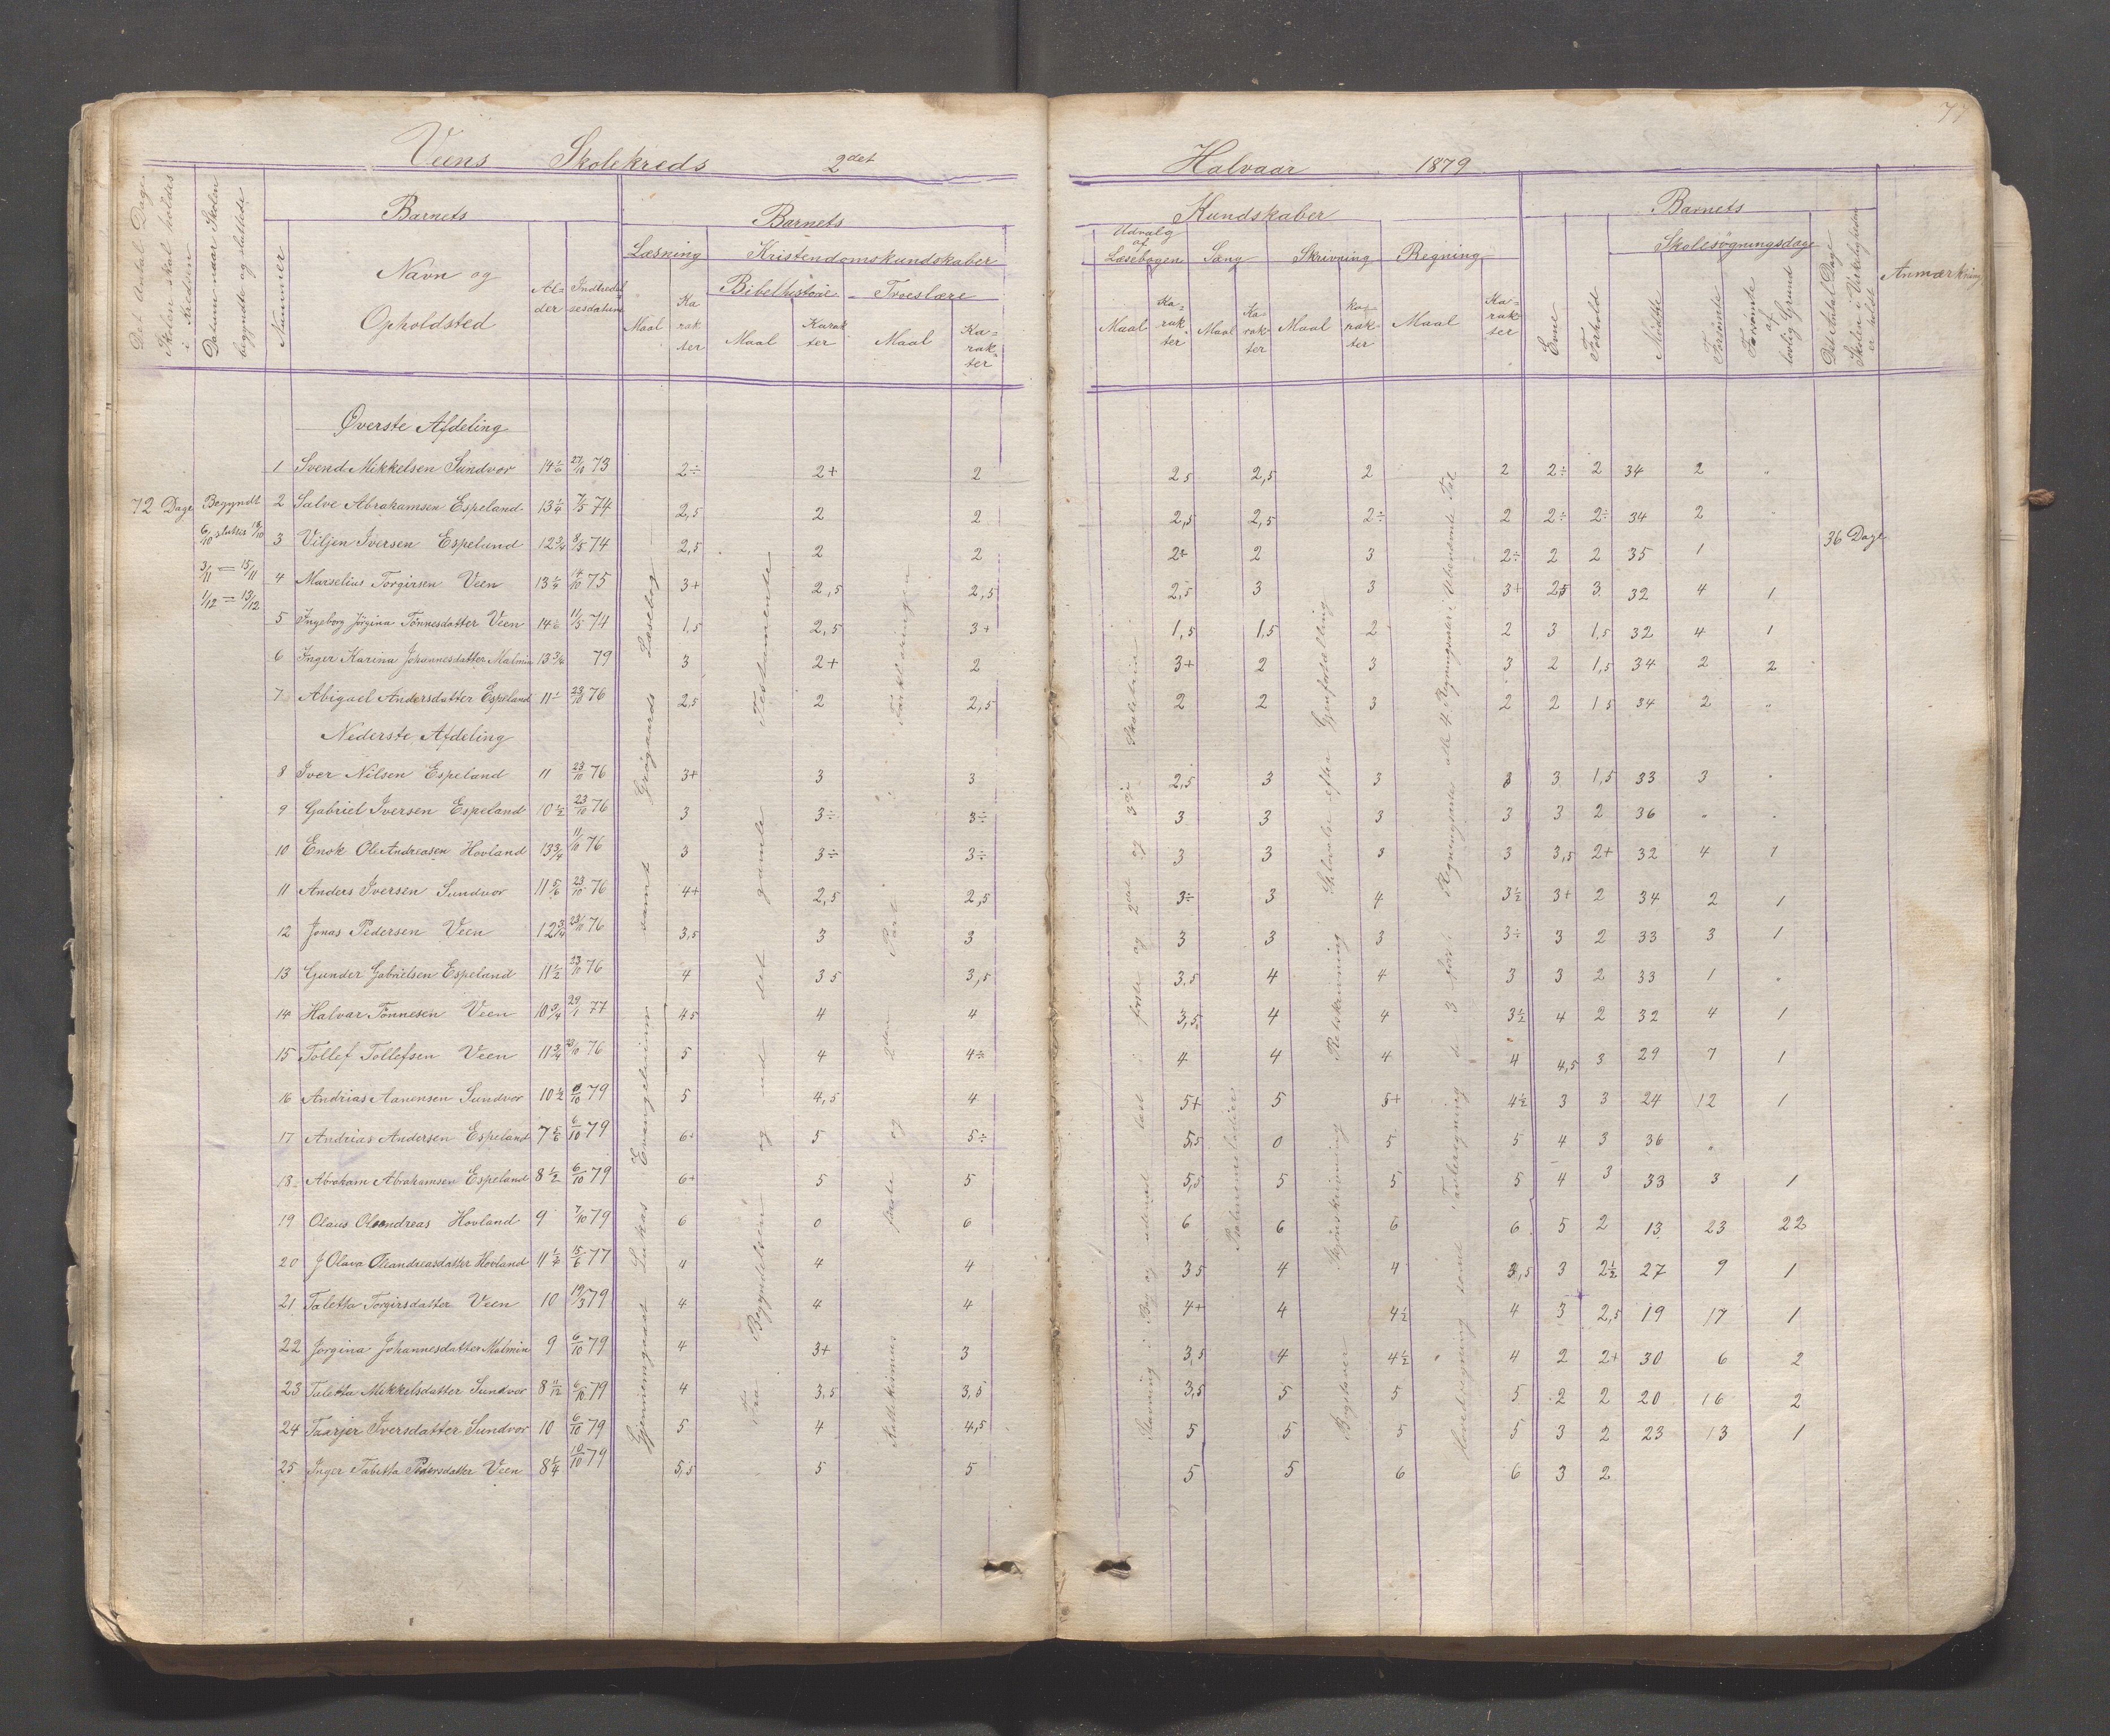 77
Veens Skolekreds 2det Halvaar 1879
Det Antal Dage Skolen skal holdes i Kredsen
Datum naar Skolen begyndte og sluttede
Nummer
Barnets
Navn og Opholdsted
Alder
Indtrædelsesdatum
Barnets Kundskaber
Læsning
Maal
Karakter
Kristendomskundskaber
Bibelhistorie
Maal
Karakter
Troeslære
Maal
Karakter
Udvalg af Læsebogen
Maal
Karakter
Sang
Maal
Karakter
Skrivning
Maal
Karakter
Regning
Maal
Karakter
Barnets
Evne
Forhold
Skolesøgningsdage
Mødte
Forsømte
Forsømte af lovlig Grund
Det Antal Dage Skolen i Virkeligheden er holdt
Anmærkning
Øverste Afdeling
1 Svend Mikkelsen Sundvor 14 1/6 27/10 73 2÷ 2+ 2 2 5 2,5 2 2 2÷ 2 34 2 "
72 Dage Begyndt 6/10 sluttes 18/10
3/11 = 15/11
1/12 = 13/12
2 Salve Abrahamsen Espeland 13 1/4 7/5 74 2,5 2 2 2,5 2,5 2÷ 2 2÷ 2÷ 34 2 "
36 Dage
3 Viljen Iversen Espeland 12 3/4 8/5 74 2,5 2 2 2÷ 2 3 2÷ 2 2 35 1
4 Marselius Torgirsen Veen 13 1/4 14/10 75 3+ 2,5 2,5 2,5 3 3 3+ 2,5 3 32 4 1
5 Ingeborg Jörgina Tönnesdatter Veen 14 1/6 11/5 74 1,5 2,5 3+ 1,5 1,5 2 2 3 1,5 32 4 1
6 Inger Karina Johannesdatter Malmin 13 3/4 79 3 2+ 2 3+ 2 3 3 2 1,5 34 2 2
7 Abigael Andersdatter Espeland 11 23/10 76 2,5 2 2,5 2 2 3 2 2 1 5 34 2 "
Nederste Afdeling
8 Iver Nilsen Espeland 11 23/10 76 3+ 3 3 2,5 3 3 3 3 1,5 33 3 "
9 Gabriel Iversen Espeland 10 1/2 23/10 76 3 3÷ 3÷ 3 3 3 3 3 2 36 " "
10 Enok OleAndreasen Hovland 13 3/4 11/10 76 3 3÷ 3÷ 3 3 3 3 3,5 2+ 32 4 1
11 Anders Iversen Sundvor 11 5/6 23/10 76 4+ 2,5 2,5 3÷ 3 4 3 1/2 3+ 2 34 2 1
12 Jonas Pedersen Veen 12 3/4 23/10 76 3,5 3 3 3 3 3 3÷ 3 2 33 3 1
13 Gunder Gabrielsen Espeland 11 1/2 23/10 76 4 3 5 3,5 3,5 4 4 3 3 2 33 1 "
14 Halvar Tönnesen Veen 10 3/4 29/1 77 4 5 4 4 3,5 4 4 3 1/2 4 2 32 4 1
15 Tollef Tollefsen Veen 11 3/4 23/10 76 5 4 4÷ 4 4 4 4 4,5 3 29 7 1
16 Andrias Aanensen Sundvor 10 1/2 8/10 79 5 4,5 4 5+ 5 5+ 4 1/2 3 3 24 12 1
17 Andrias Andersen Espeland 7 5/6 6/10 79 6+ 5 5÷ 5,5 0 5 5 4 3 36 "
18 Abraham Abrahamsen Espeland 8 1/2 6/10 79 6+ 5 5 5,5 5 5 5 4 3 33 3 1
19 Olaus Oleandreas Hovland 9 7/10 79 6 0 6 6 6 6 6 5 2 13 23 22
20 J Olava Oleandreasdatter Hovland 11 1/4 15/6 77 4 4 4 3 5 4 4 3,5 3 2 1/2 27 9 1
21 Taletta Torgirsdatter Veen 10 19/3 79 4 4 4 4+ 4 4 1/2 4 3 2,5 19 17 1
22 Jorgina Johannesdatter Malmin 9 6/10 79 4 3+ 3 3,5 4 4 1/2 4 2 2+ 30 6 2
23 Taletta Mikkelsdatter Sundvor 8 11/12 6/10 79 4 3,5 3,5 3,5 5 5 5 2 2 20 16 2
24 Taarjer Iversdatter Sundvor 10 6/10 79 5 4 4,5 5 5 5 5 3 2 23 13 1
25 Inger Tabitta Pedersdatter Veen 8 1/4 10/10 79 5,5 5 5 5 5 6 6 3 2
Gjennemgaaet Lukas Evangelium samt Grøgaards Læsebog
Fra Begyndelsen og ud det gamle Testamente
Katekismus første og 2den Part i Forklaringen
Stavning i Bog og udenad læst i første og 2det og 3die Skoletrin
Salmemelodier
Bogstaver Skjønskrivning Retskrivning Skrivelse efter Gjenfortælling
Hovedregning samt Tavleregning de 3 første Regningsarter alle 4 Regningsarter i Ubenævnte Tal